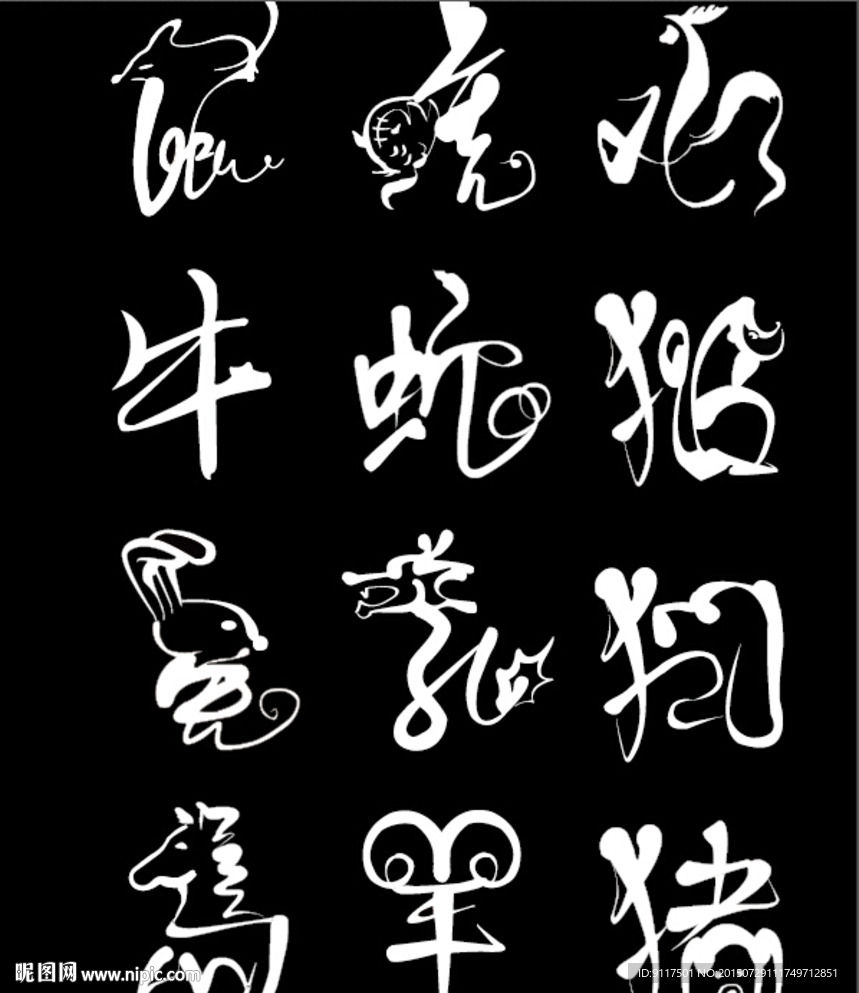 鼠 虎 鸡
牛 蛇 猴
兔 龙 狗
馬 羊 猪
昵图网 www.nipic.com
ID:9117501 NO:20150729111749712851